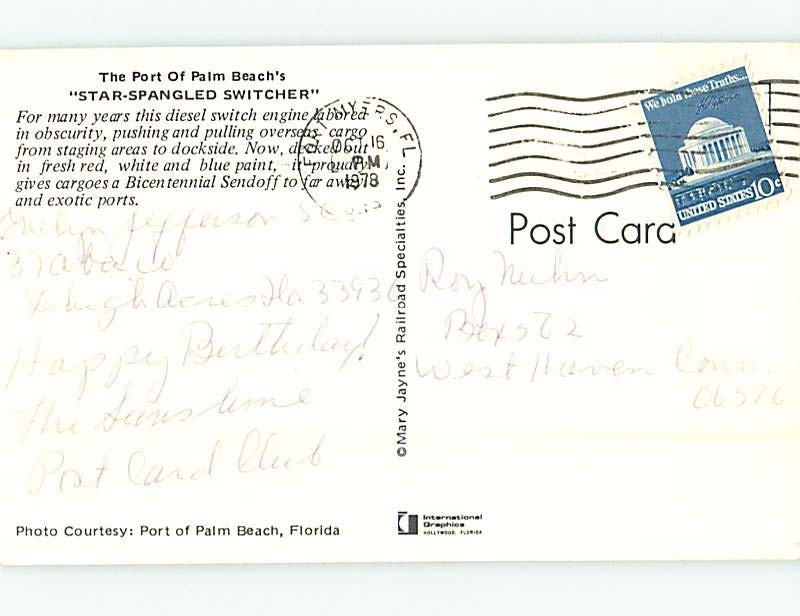 The Port Of Palm Beach's
"STAR-SPANGLED SWITCHER"
For many years this diesel switch engine labored
in obscurity, pushing and pulling overseas cargo
from staging areas to dockside. Now, decked out
in fresh red, white and blue paint, it proudly
gives cargoes a Bicentennial Sendoff to far away
and exotic ports.
Evelyn Jefferson
37 Abaco
Lehigh Acres Fla 33936
Happy Birthday!
The Sunshine
Post Card Club
Photo Courtesy: Port of Palm Beach, Florida
©Mary Jayne's Railroad Specialties, Inc.
International
Graphics
HOLLYWOOD, FLORIDA
FORT MYERS, FL
16
PM
1978
We hold these Truths...
UNITED STATES 10c
Post Card
Roy Nuhn
Box 562
West Haven Conn.
06516